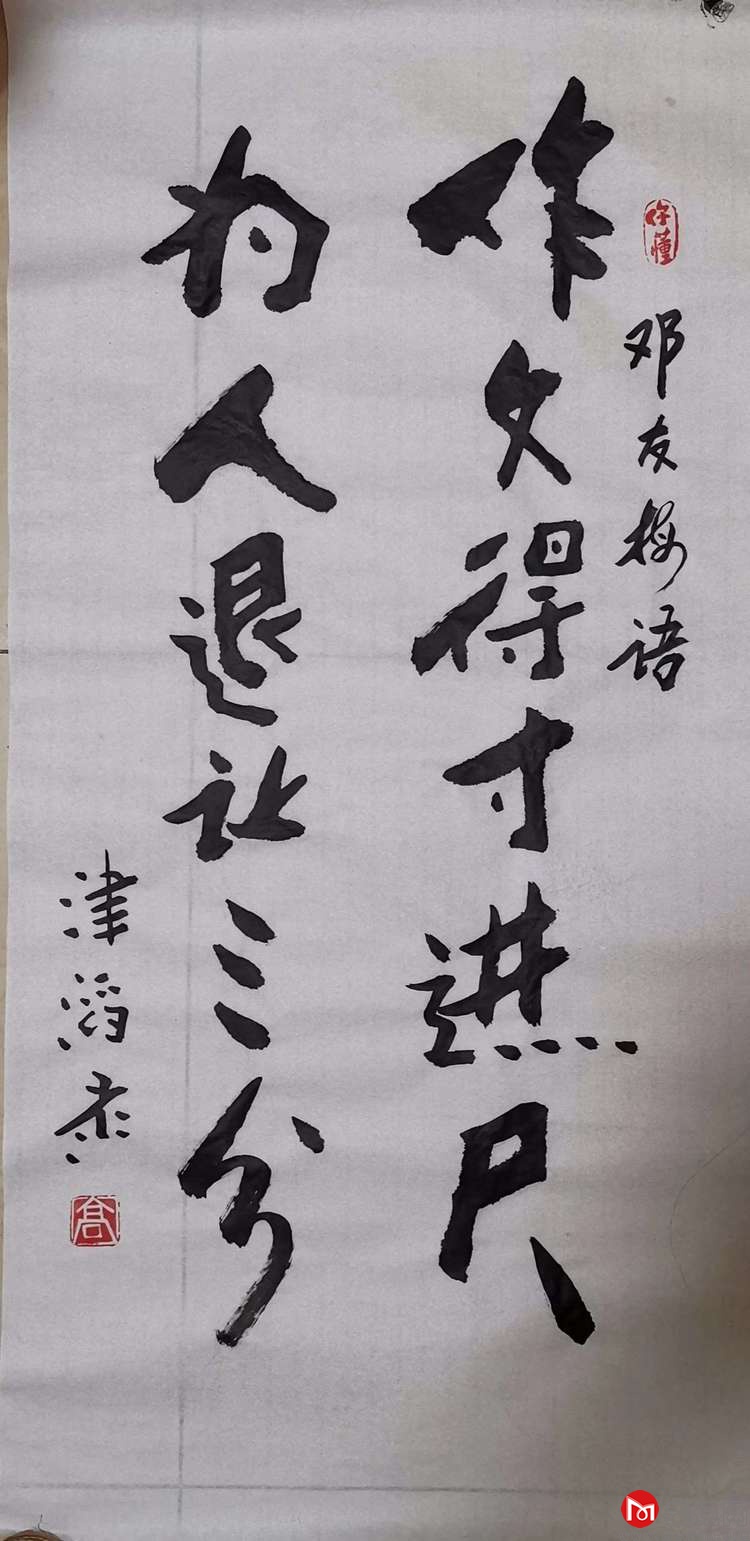 邓友梅语
作文得寸进尺
为人退让三分
津
高